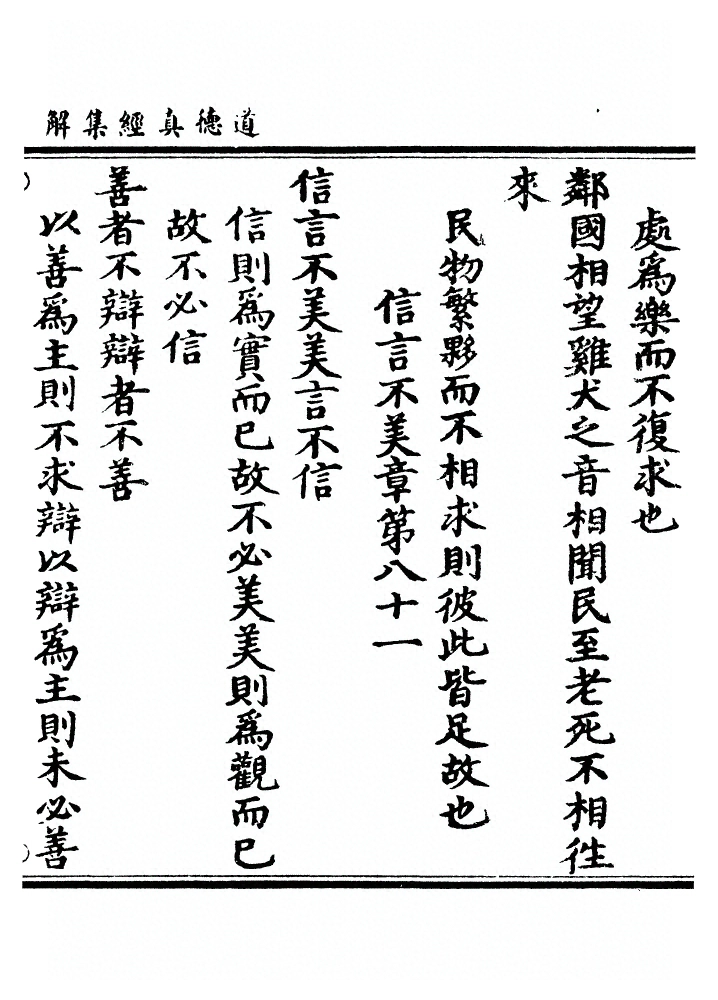 道德真經集解
處爲樂而不復求也
鄰國相望雞犬之音相聞民至老死不相徃
來
民物繁夥而不相求則彼此皆足故也
信言不美章第八十一
信言不美美言不信
信則爲實而已故不必美美則爲觀而已
故不必信
善者不辯辯者不善
以善爲主則不求辯以辯爲主則未必善